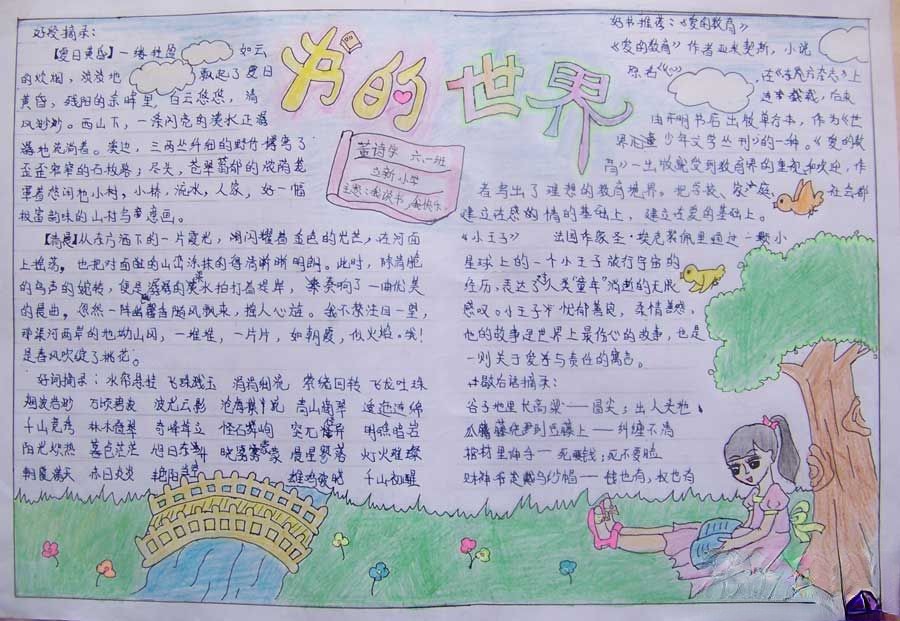 好段摘录：
【夏日黄昏】一缕
如云
的炊烟，淡淡地
飘起了夏日
黄昏，残阳的余晖里，白云悠悠，清
风妙妙。西山下，一条闪亮的溪水正潺
潺地流淌着。溪边，三两丛纤细的野竹掩离了
歪歪窄窄的石板路；尽头，苍翠蓊郁的浓荫笼
罩着悠闲的小村，小桥，流水，人家，好一幅
极富韵味的山村写意画。
【清晨】从东方洒下的一片霞光，湖闪耀着金色的光芒，在河面
上摇荡，也把对面的山峦涂抹的得清晰明朗。此时，除清脆
的鸟声的婉转，便是溪水拍打着堤岸，演奏响了一曲优美
的晨曲，忽然一阵幽馨香随风飘来，撩人心弦。我不禁注目一望，
那溪河两岸的也幼山冈，一堆堆，一片片，如朝霞，似火焰。哦！
是春风吹绽了桃花。
好词摘录：水帘悬挂 飞珠溅玉 涓涓细流 萦绕回转 飞龙吐珠
烟波浩渺 万顷碧波 波光云影 沧海横流 青山叠翠 逶迤连绵
千山竞秀 林木叠翠 奇峰耸立 怪石嶙峋 突兀怪异 明礁暗岩
阳光炽热 暮色茫茫 旭日东升 晓雾雾蒙 晨星寥落 灯火璀璨
朝霞满天 赤日炎炎 艳阳高 雄鸡破晓 千山初醒
书的世界
董诗宇 六一班
立新小学
主题：我读书，我快乐
好书推荐：《爱的教育》
《爱的教育》作者亚米契斯，小说
原名《心》
，在《东方杂志》上
连载，后来
由开明书店出版单行本，作为《世
界少年文学丛刊》的一种。《爱的教
育》一出版就受到教育界的重视和欢迎，作
者写出了理想的教育境界。把学校、家庭、社会都
建立在感的情的基础上，建立在爱的基础上。
《小王子》 法国作家圣·埃克絮佩里通过一颗小
星球上的一个小王子旅行宇宙的
经历，表达了对人类“童年”消逝的无限
感叹。小王子忧郁善良，柔情善感，
他的故事是世界上最伤心的故事，也是
一则关于爱与责任的寓言。
歇后语摘录：
谷子地里长高粱——冒尖；出人头地
瓜藤绕到豆藤上——纠缠不清
棺材里伸手——死要钱；死不要脸
财神爷戴乌纱帽——钱也有，权也有